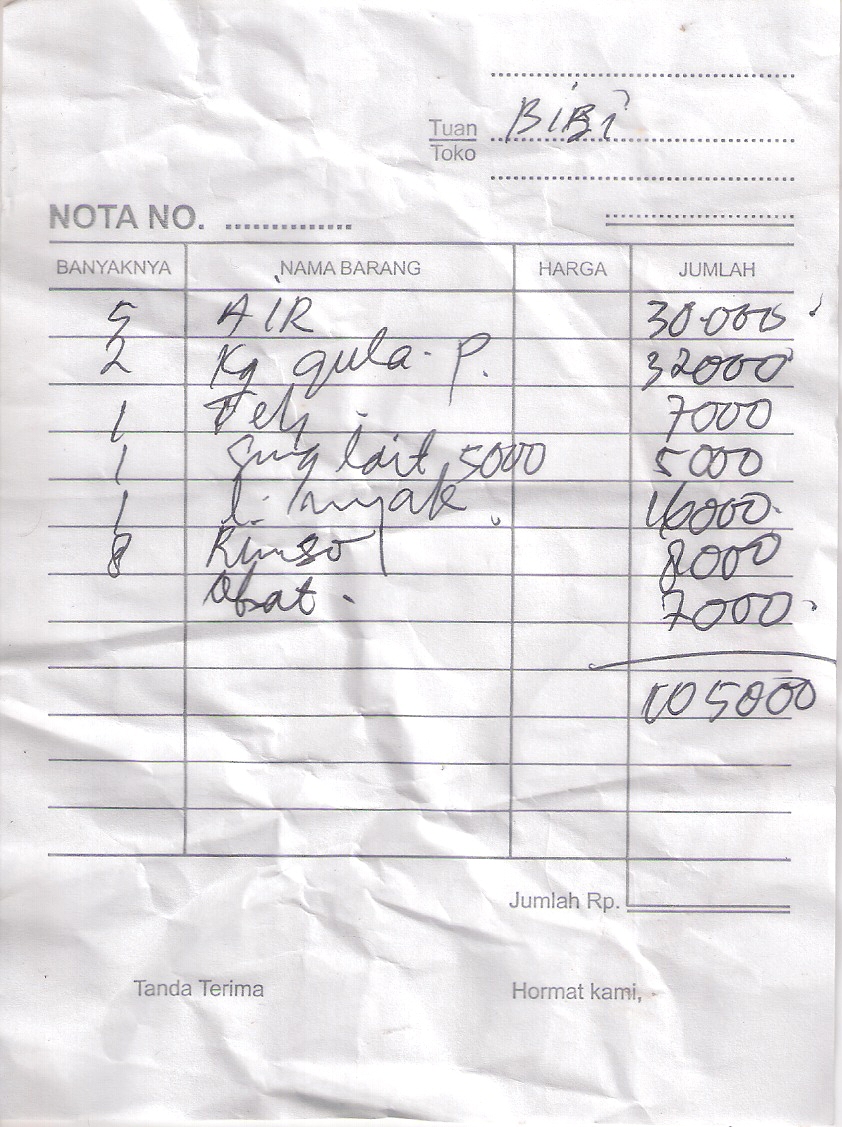 Tuan
Toko BiBi
NOTA NO. ..............
BANYAKNYA NAMA BARANG HARGA JUMLAH
5 AIR 30.000
2 Kg gula. P. 32000
1 Teh 7000
1 5000 5000
1 16000
8 Rinso 8000
Obat. 7000
105000
Jumlah Rp.
Tanda Terima Hormat kami,